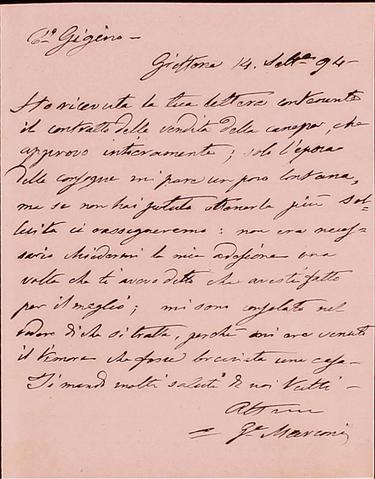 Gigino –
Griffone 14. Sett.e 94 –
Ho ricevuta la tua lettera contenente
il contratto della vendita della canepa, che
approvo intieramente; solo l'epoca
delle consegne mi pare un poco lontana,
ma se non hai potuto ottenerla più sol-
lecita ci rassegneremo: non era neces-
sario chiedermi la mia adesione una
volta che ti avevo detto che avresti fatto
per il meglio; mi sono consolato nel
vedere di che si tratta, perchè mi era venuto
il timore che fosse bruciata una casa –
Ti mando molti saluti di noi tutti –
Aff
= G. Marconi